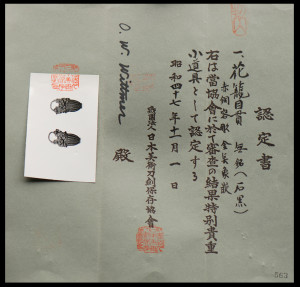 認定書
一、花籠目貫 無銘(石黒)
赤銅容彫 金銀象嵌
右は當協會に於て審査の結果特別貴重
小道具として認定する
昭和四十七年十一月一日
財團法人日本美術刀劍保存協會
O. W. Wittner 殿
563